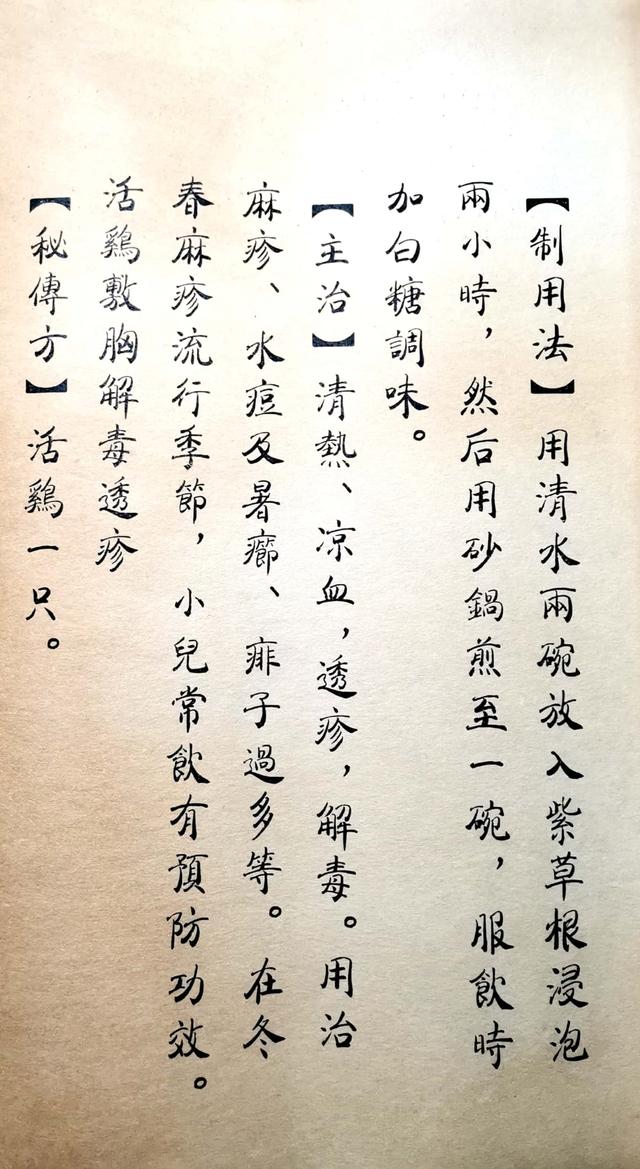 【制用法】用清水兩碗放入紫草根浸泡
兩小時，然后用砂鍋煎至一碗，服飲時
加白糖調味。
【主治】清熱、凉血，透疹，解毒。用治
麻疹、水痘及暑癤、痱子過多等。在冬
春麻疹流行季節，小兒常飲有預防功效。
活鷄敷胸解毒透疹
【秘傳方】活鷄一只。